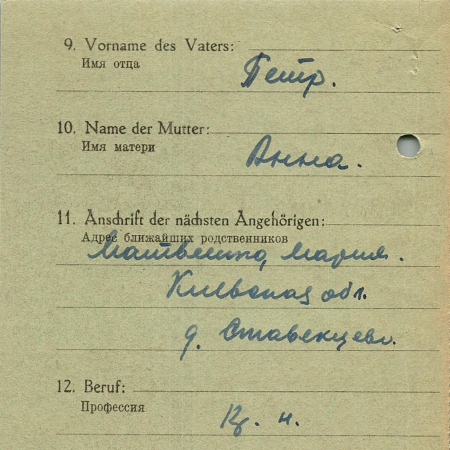 9. Vorname des Vaters:
Имя отца
Петр.
10. Name der Mutter:
Имя матери
Анна.
11. Anschrift der nächsten Angehörigen:
Адрес ближайших родственников
Матвеенко, Мария.
Киевская обл.
д.
12. Beruf:
Профессия
Кр. н.